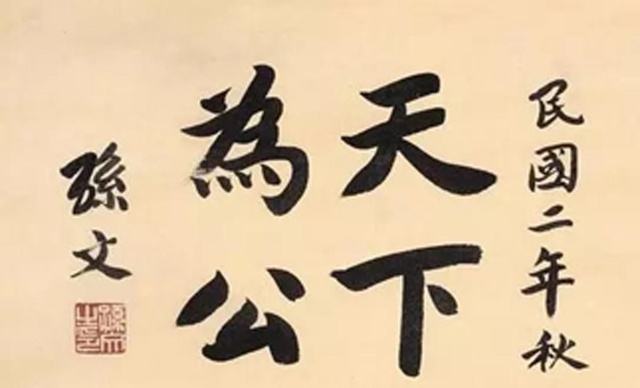 民國二年秋
天下
為公
孫文